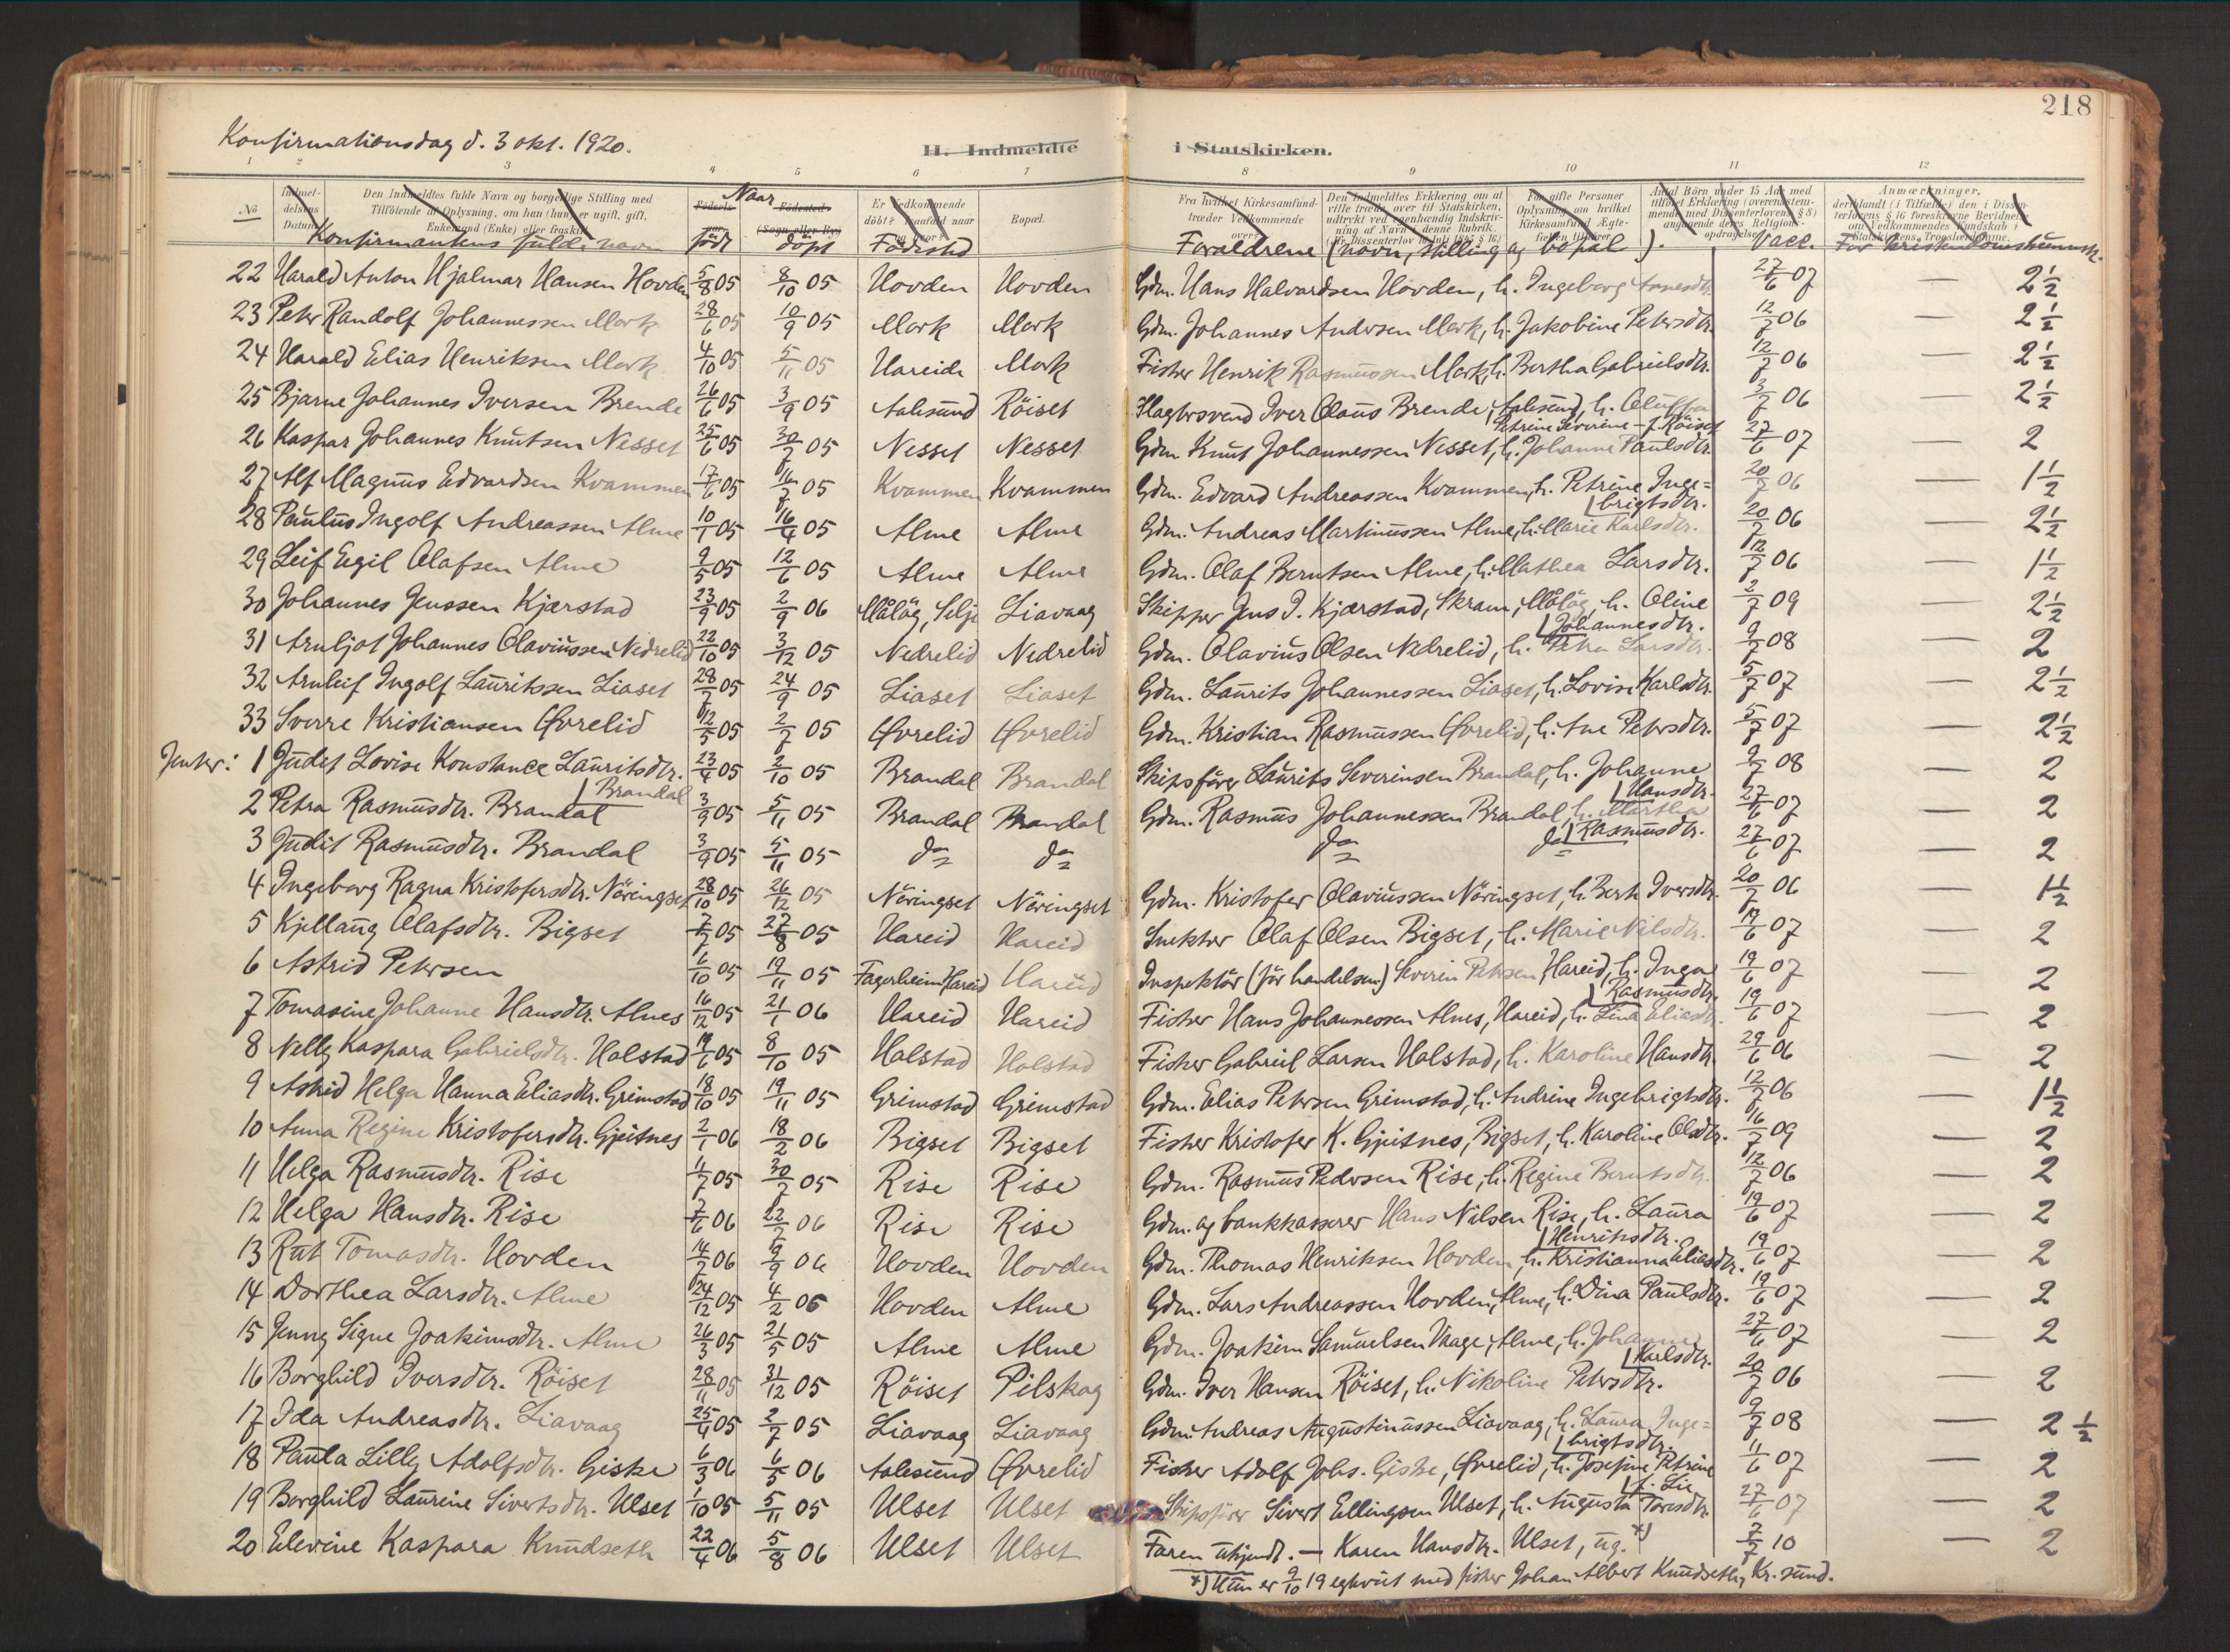 218
Konfirmationsdag d. 3 okt. 1920.
H. Indmeldte i Statskirken.
1 2 3 4 5 6 7 8 9 10 11 12
No Indmeldelsens Datum Den Indmeldtes fulde Navn og borgerlige Stilling med Tilföiende af Oplysning, om han (hun) er ugift, gift, Enkemand (Enke) eller fraskilt Naar Bopæl.
Konfirmantens fulde navn født döpt Födested Foreldrene (navn, stilling og bopæl). Vacc.
22 Harald Anton Hjalmar Hansen Hovden 5/8 05 8/10 05 Hovden Hovden Gdm. Hans Halvardsen Hovden, h. Ingeborg 27/6 07 — 2½
23 Peter Randolf Johannessen Mork 28/6 05 10/9 05 Mork Mork Gdm. Johannes Andersen Mork, h. Jakobine Petersdtr. 12/7 06 — 2½
24 Harald Elias Henriksen Mork 4/10 05 5/11 05 Hareide Mork Fisker Henrik Rasmussen Mork, h. Bertha Gabrielsdtr. 12/7 06 — 2½
25 Bjarne Johannes Iversen Brende 26/6 05 3/9 05 Aalesund Röiset Slagtersvend Iver Olaus Brende, Aalesund, h. 3/7 06 — 2½
Petrine Severine f. Röiset
26 Kaspar Johannes Knutsen Nesset 25/6 05 30/7 05 Nesset Nesset Gdm. Knut Johannessen Nesset, h. Johanne Paulsdtr. 27/6 07 — 2
27 Alf Magnus Edvardsen Kvammen 17/6 05 16/7 05 Kvammen Kvammen Gdm. Edvard Andreassen Kvammen, h. Petrine Inge= 20/7 06 — 1½
brigtsdtr.
28 Paulus Ingolf Andreassen Alme 10/1 05 16/4 05 Alme Alme Gdm. Andreas Martinussen Alme, h. Marie Karlsdtr. 20/7 06 — 2½
29 Leif Eegil Olafsen Alme 9/5 05 12/6 05 Alme Alme Gdm. Olaf Berntsen Alme, h. Mathea Larsdtr. 12/7 06 — 1½
30 Johannes Jenssen Kjærstad 23/9 05 2/9 06 Måløy, Selje Liavaag Skipper Jens J. Kjærstad, Skram, Måløy, h. Oline 2/7 09 — 2½
Johannesdtr.
31 Arnljot Johannes Olaviussen Nedrelid 22/10 05 3/12 05 Nedrelid Nedrelid Gdm. Olavius Olsen Nedrelid, h. Petra Larsdtr. 9/7 08 — 2
32 Arnleif Ingolf Lauritssen Liaset 28/7 05 24/9 05 Liaset Liaset Gdm. Laurits Johannessen Liaset, h. Lovise Karlsdtr. 5/7 07 — 2½
33 Sverre Kristiansen Øvrelid 12/5 05 2/7 05 Øvrelid Øvrelid Gdm. Kristian Rasmussen Øvrelid, h. Ane Petersdtr. 5/7 07 — 2½
Jenter: 1 Judet Lovise Konstance Lauritsdtr. 23/4 05 2/10 05 Brandal Brandal Skipsfører Laurits Severinsen Brandal, h. Johanne 9/7 08 — 2
Brandal Hansdtr.
2 Petra Rasmusdtr. Brandal 3/9 05 5/11 05 Brandal Brandal Gdm. Rasmus Johannessen Brandal, h. Martha 27/6 07 — 2
Rasmusdtr.
3 Judit Rasmusdtr. Brandal 3/9 05 5/11 05 do do do do 27/6 07 — 2
4 Ingeborg Ragna Kristofersdtr. Nöringset 28/10 05 26/12 05 Nöringset Nöringset Gdm. Kristofer Olaviussen Nöringset, h. Berte Iversdtr. 20/7 06 — 1½
5 Kjellaug Olafsdtr. Bigset 7/7 05 27/8 05 Hareid Hareid Snekker Olaf Olsen Bigset, h. Marie Nilsdtr. 19/6 07 — 2
6 Astrid Petersen 6/10 05 19/11 05 Fagerheim, Hareid Hareid Inspektör (för handelsen) Severin Petersen, Hareid, h. Inga 19/6 07 — 2
Rasmusdtr.
7 Tomasine Johanne Hansdtr. Alnes 16/12 05 21/1 06 Hareid Hareid Fisker Hans Johannessen Alnes, Hareid, h. Lina Eliasdtr. 19/6 07 — 2
8 Nelly Kaspara Gabrielsdtr. Holstad 19/6 05 8/10 05 Holstad Holstad Fisker Gabriel Larsen Holstad, h. Karoline Hansdtr. 29/6 06 — 2
9 Astrid Helga Hanna Eliasdtr. Grimstad 18/10 05 19/11 05 Grimstad Grimstad Gdm. Elias Petersen Grimstad, h. Andrine Ingebrigtsdtr. 12/7 06 — 1½
10 Anna Regine Kristofersdtr. Gjeitnes 2/1 06 18/2 06 Bigset Bigset Fisker Kristofer K. Gjeitnes, Bigset, h. Karoline Olsdtr. 16/7 09 — 2
11 Helga Rasmusdtr. Rise 11/7 05 30/7 05 Rise Rise Gdm. Rasmus Pedersen Rise, h. Regine Berntsdtr. 12/7 06 — 2
12 Helga Hansdtr. Rise 7/6 06 22/7 06 Rise Rise Gdm. og bankkasserer Hans Nilsen Rise, h. Laura 19/6 07 — 2
Henriksdtr.
13 Rut Tomasdtr. Hovden 14/7 06 9/9 06 Hovden Hovden Gdm. Thomas Henriksen Hovden, h. Kristianna Eliasdtr. 19/6 07 — 2
14 Dorthea Larsdtr. Alme 24/12 05 4/2 06 Hovden Alme Gdm. Lars Andreassen Hovden, Alme, h. Dina Paulsdtr. 19/6 07 — 2
15 Jenny Signe Joakimsdtr. Alme 26/3 05 21/5 05 Alme Alme Gdm. Joakim Samuelsen Vaage, Alme, h. Johanne 27/6 07 — 2
Karlsdtr.
16 Borghild Iversdtr. Röiset 28/11 05 31/12 05 Röiset Pilskog Gdm. Iver Hansen Röiset, h. Nikoline Petersdtr. 20/7 06 — 2
17 Ida Andreasdtr. Liavaag 25/4 05 2/7 05 Liavaag Liavaag Gdm. Andreas Augustinussen Liavaag, h. Laura Inge= 9/7 08 — 2½
brigtsdtr.
18 Paula Lilly Adolfsdtr. Giske 6/3 06 6/5 06 Aalesund Øvrelid Fisker Adolf Johs. Giske, Øvrelid, h. Josefine Petrine 11/6 07 — 2
f. Lie
19 Borghild Laurine Sivertsdtr. Ulset 1/10 05 5/11 05 Ulset Ulset Skipsfører Sivert Ellingsen Ulset, h. Augusta Toresdtr. 27/6 07 — 2
20 Elevine Kaspara Knudseth 22/4 06 5/8 06 Ulset Ulset Faren ukjendt. — Karen Hansdtr. Ulset, ug. x) 7/7 10 — 2
x) Hun er 9/10 19 egteviet med fisker Johan Albert Knudseth, Kr.sund.